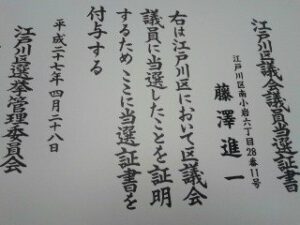 江戸川区議会議員当選証書
江戸川区南小岩六丁目28番11号
藤澤進一
右は江戸川区において区議会
議員に当選したことを証明
するためここに当選証書を
付与する
平成二十三年四月二十八日
江戸川区選挙管理委員会